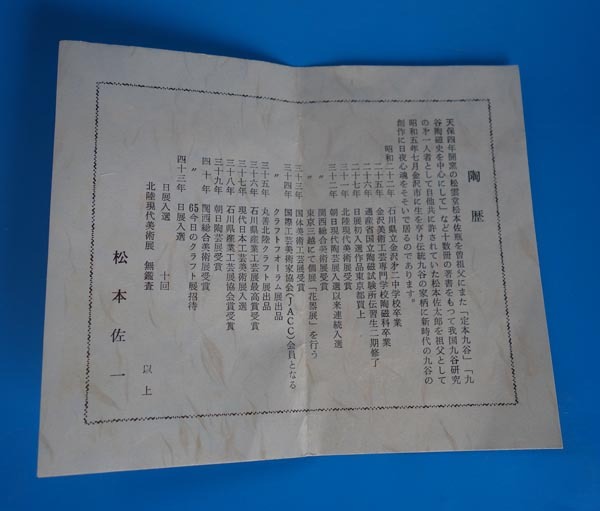 陶歴
天保四年開窯の松雲堂松本佐瓶を曽祖父にまた「定本九谷」「九
谷陶磁史を中心にして」など十数冊の著書をもつて我国九谷研究
の才一人者として自他共に許されていた松本佐太郎を祖父として
昭和五年七月金沢市に生を享け伝統九谷の家柄に新時代の九谷の
創作に日夜心魂をそそいで居るのであります。
昭和二十二年 石川県立金沢才二中学校卒業
二十五年 金沢美術工芸専門学校陶磁科卒業
二十六年 通産省国立陶磁試験所伝習生二期修了
二十七年 日展初入選作品東京都買上
三十一年 北陸現代美術展受賞
三十二年 朝日現代陶芸展入選以来連続入選
〃 関西総合美術展受賞
〃 東京三越にて個展「花器展」を行う
三十三年 国体美術工芸展受賞
三十四年 国際工芸美術家協会(IACC)会員となる
〃 クラフトフオーラム展出品
三十五年 丸善北陸クラフト展出品
三十六年 石川県産業工芸展最高賞受賞
三十七年 現代日本工芸美術展入選
三十八年 石川県産業工芸展協会賞受賞
三十九年 朝日陶芸展受賞
四十年 関西総合美術展受賞
〃 65今日のクラフト展招待
四十三年 日展入選
日展入選 十回
北陸現代美術展 無鑑査
以上
松本佐一